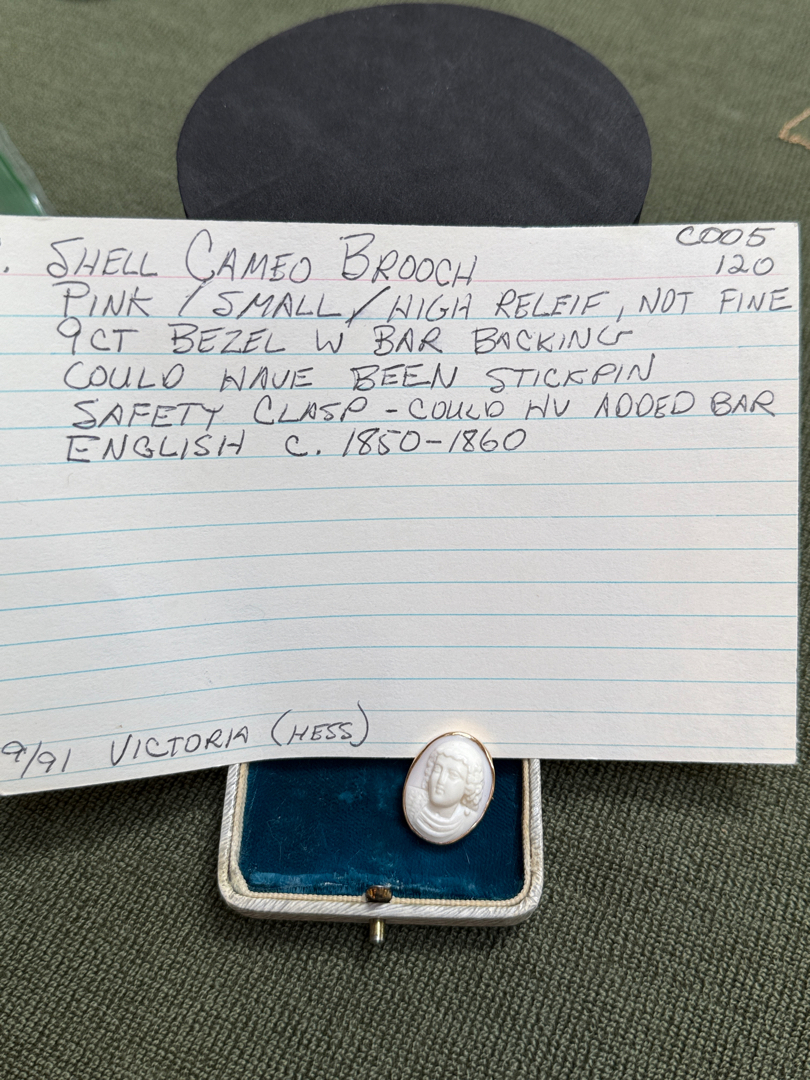 C005
. SHELL CAMEO BROOCH 120
PINK / SMALL / HIGH RELEIF, NOT FINE
9CT BEZEL W BAR BACKING
COULD HAVE BEEN STICKPIN
SAFETY CLASP - COULD HV ADDED BAR
ENGLISH C. 1850-1860
9/91 VICTORIA (HESS)